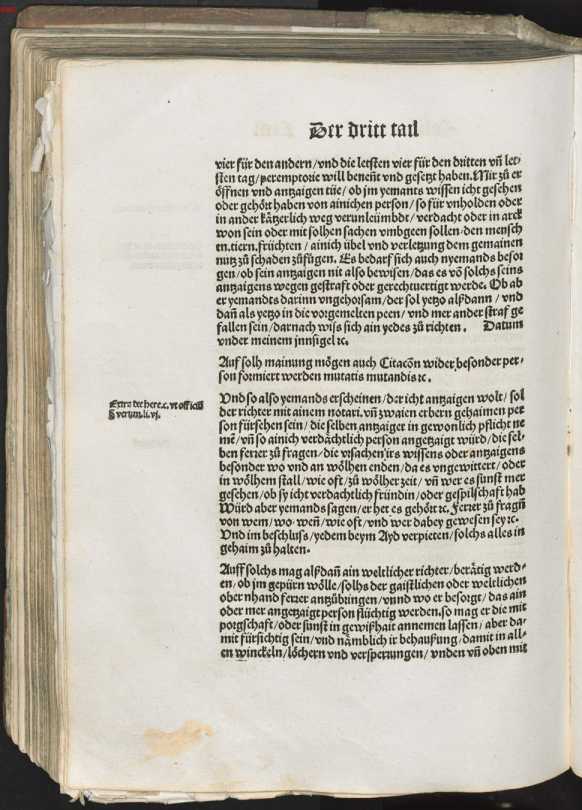 Der dritt tail
vier für den andern/vnd die letsten vier für den dritten vñ let-
sten tag/peremptorie will benent vnd gesetzt haben. Mir zů er
öffnen vnd antzaigen tüe/ob jm yemants wissen icht gesehen
oder gehört haben von ainichen person/so für vnholden oder
in ander kätzerlich weg verunleümbdt/verdacht oder in arck
won sein oder mit solhen sachen vmbgeen sollen/den mensch
en.tiern.früchten/ainich übel vnd verletzung dem gemainen
nutz zů schaden zůfügen. Es bedarf sich auch nyemands besor
gen/ob sein antzaigen nit also bewisen/das es võ solchs seins
antzaigens wegen gestraft oder gerechtuertigt werde. Ob ab
er yemandts darinn vngehorsam/der sol yetzo alßdann/vnd
dañ als yetzo in die vorgemelten peen/vnd mer ander straf ge
fallen sein/darnach wiss sich ain yedes zů richten. Datum
vnder meinem jnnsigel ꝛc.
Auf solh mainung mögen auch Citacõn wider besonder per-
son formiert werden mutatis mutandis ꝛc.
Extra de here.c.vt officiũ
§ verum.li.vj.
Vnd so also yemands erscheinen/der icht antzaigen wolt/sol
der richter mit ainem notari.vñ zwaien erbern gehaimen per
son fürsehen sein/die selben antzaiger in gewonlich pflicht ne
mē/vñ so ainich verdächtlich person angetzaigt würd/die sel-
ben ferrer zů fragen/die vrsachen irs wissens oder antzaigens
besonder wo vnd an wölhen enden/da es vngewittert/oder
in wölhem stall/wie oft/zů wölher zeit/vñ wer es sunst mer
gesehen/ob sy icht verdachtlich fründin/oder gespilschaft hab
Würd aber yemands sagen/er het es gehört ꝛc. Ferrer zů fragñ
von wem/wo.weñ/wie oft/vnd wer dabey gewesen sey ꝛc.
Vnd im beschluss/yedem beym Ayd verpieten/solchs alles in
gehaim zů halten.
Auff solchs mag alßdañ ain weltlicher richter/berätig werd-
en/ob jm gepürn wölle/solhs der gaistlichen oder weltlichen
ober nhand ferrer antzůbringen/vnnd wo er besorgt/das ain
oder mer angetzaigt person flüchtig werden.so mag er die mit
porgschaft/oder sunst in gewißhait annemen lassen/aber da-
mit fürsichtig sein/vnd nämblich ir behausung/damit in all-
en winckeln/löchern vnd versperrungen/vnden vñ oben mit